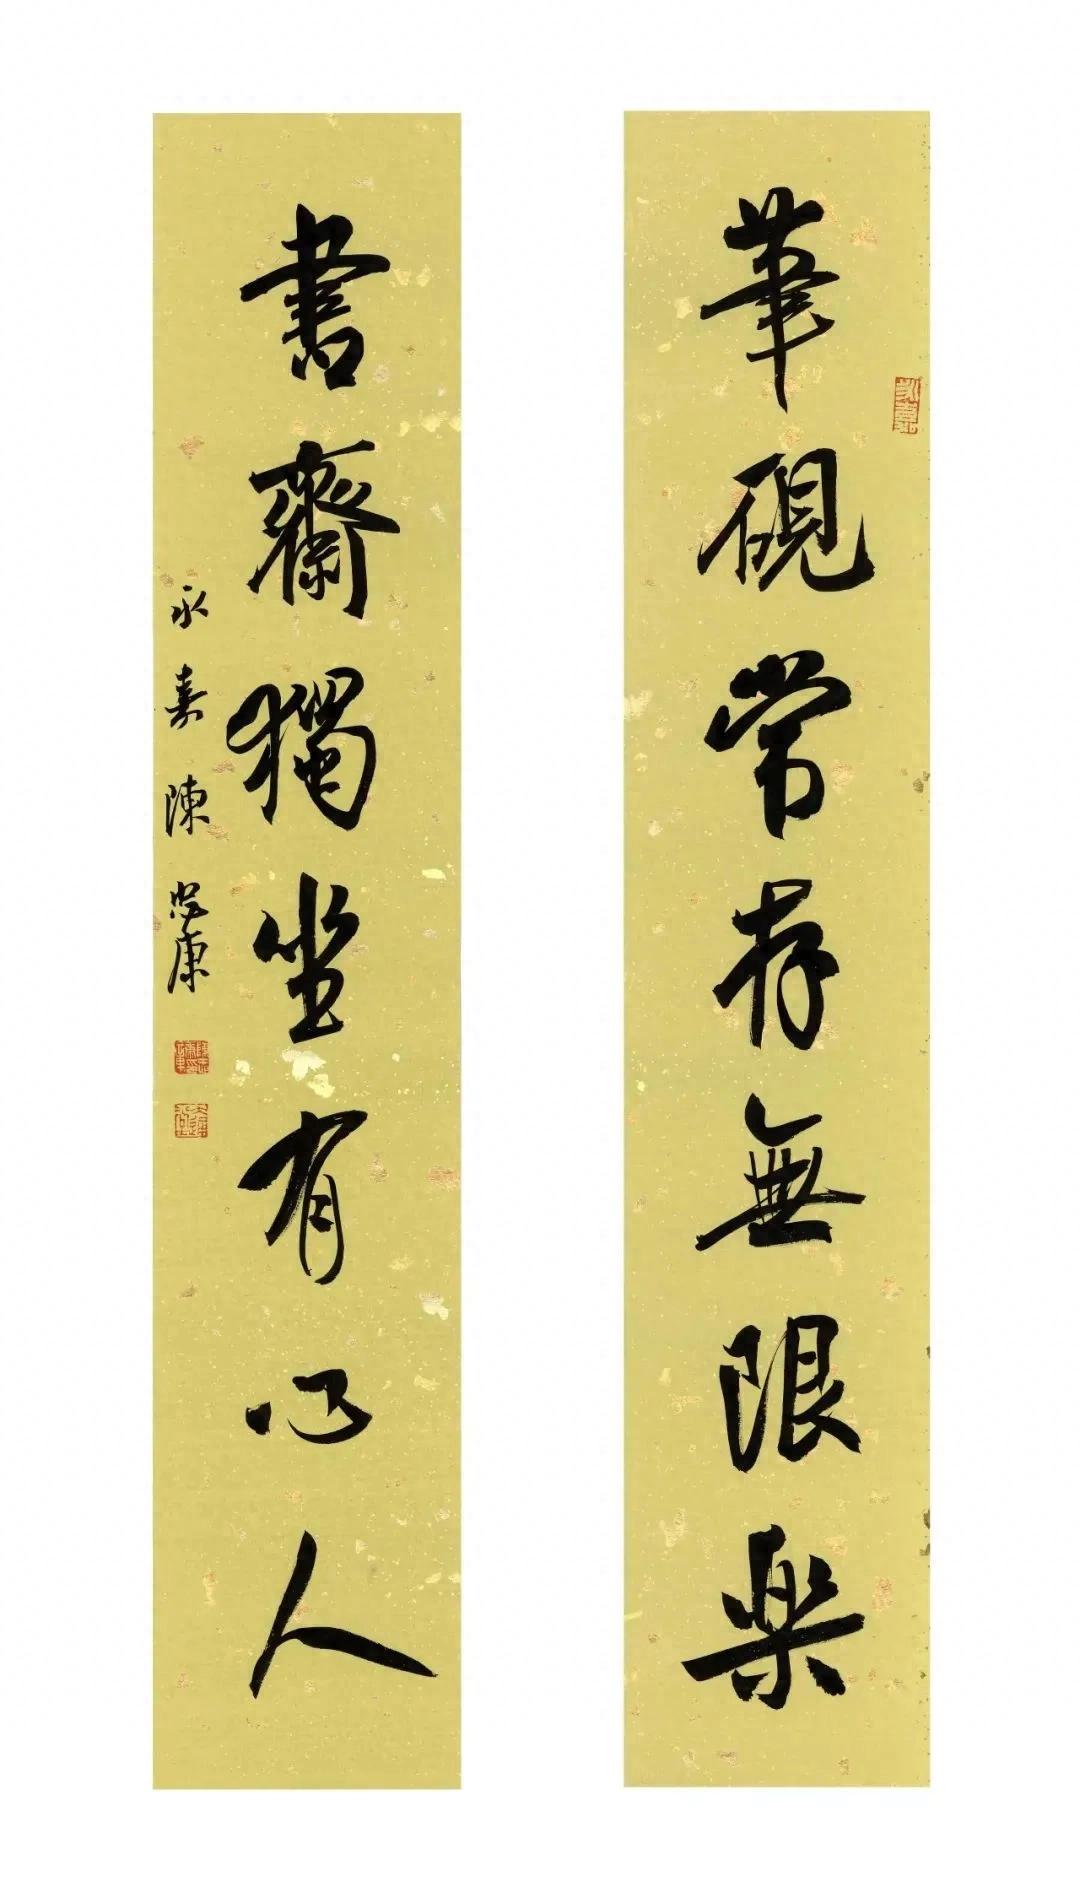 筆硯常存無限樂
書齋獨坐有心人
永嘉陳忠康